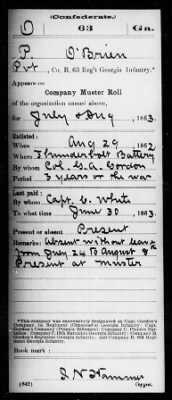 (Confederate.)
O 63 Ga.
P O'Brien
Pvt, Co. B, 63 Reg't Georgia Infantry.*
Appears on
Company Muster Roll
of the organization named above,
for July & Aug, 1863.
Enlisted:
When Aug 29, 1862
Where Thunderbolt Battery
By whom Col. G. A. Gordon
Period 3 years or the war
Last paid:
By whom Capt. C. White
To what time June 30, 1863.
Present or absent Present
Remarks: Absent without leave
from July 24 to August 8th
Present at muster
*This company was successively designated as Capt. Gordon's
Company, 1st Regiment (Olmstead's) Georgia Infantry; Capt.
Gordon's Company (Phœnix Riflemen)
Company B, 63d Regiment
Georgia Infantry.
Book mark:
(642) Copyist.